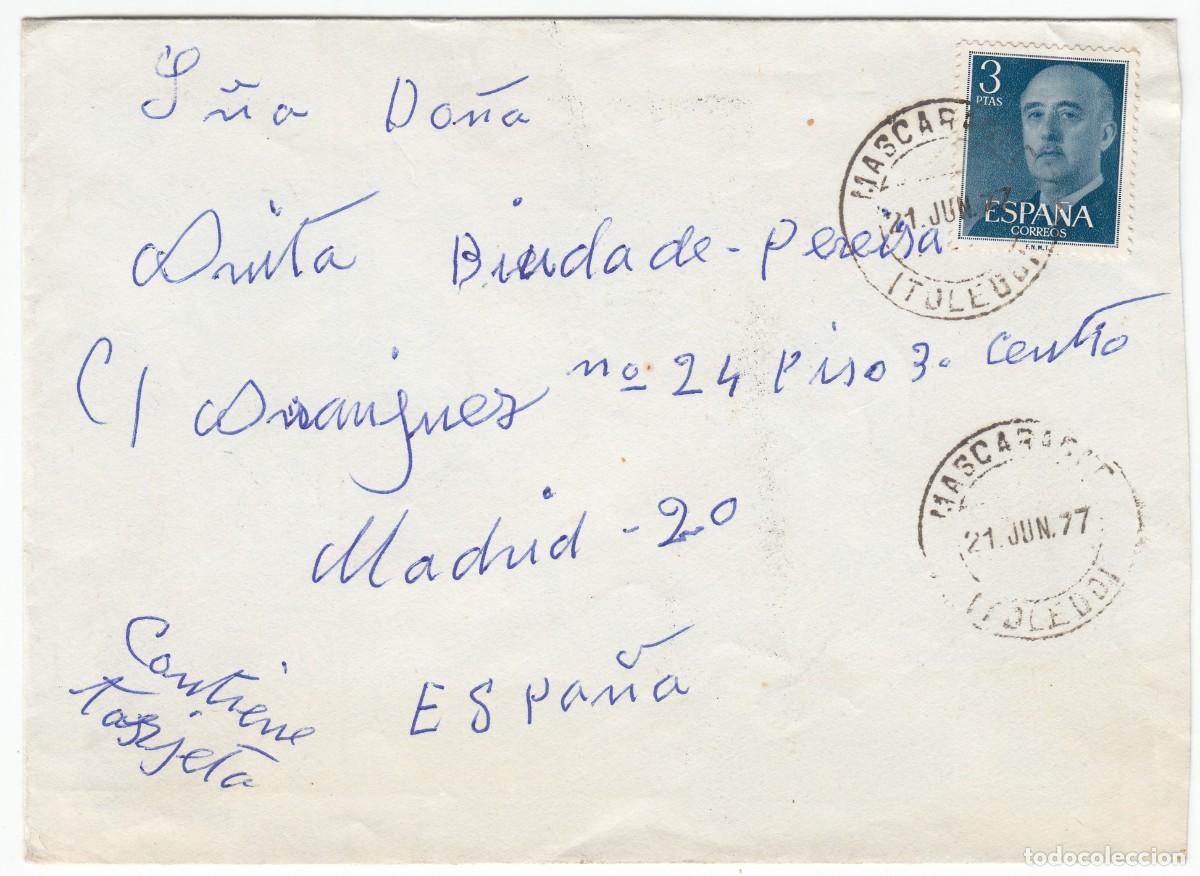 Sña Doña
Anita Biuda de - Pereira
C/ Dranguez nº 24 Piso 3. Centro
Madrid - 20
ESPaña
Contiene
Tarjeta
3
PTAS
ESPAÑA
CORREOS
F.N.M.T.
21. JUN. 77
(TOLEDO)
21. JUN. 77
(TOLEDO)
todocoleccion